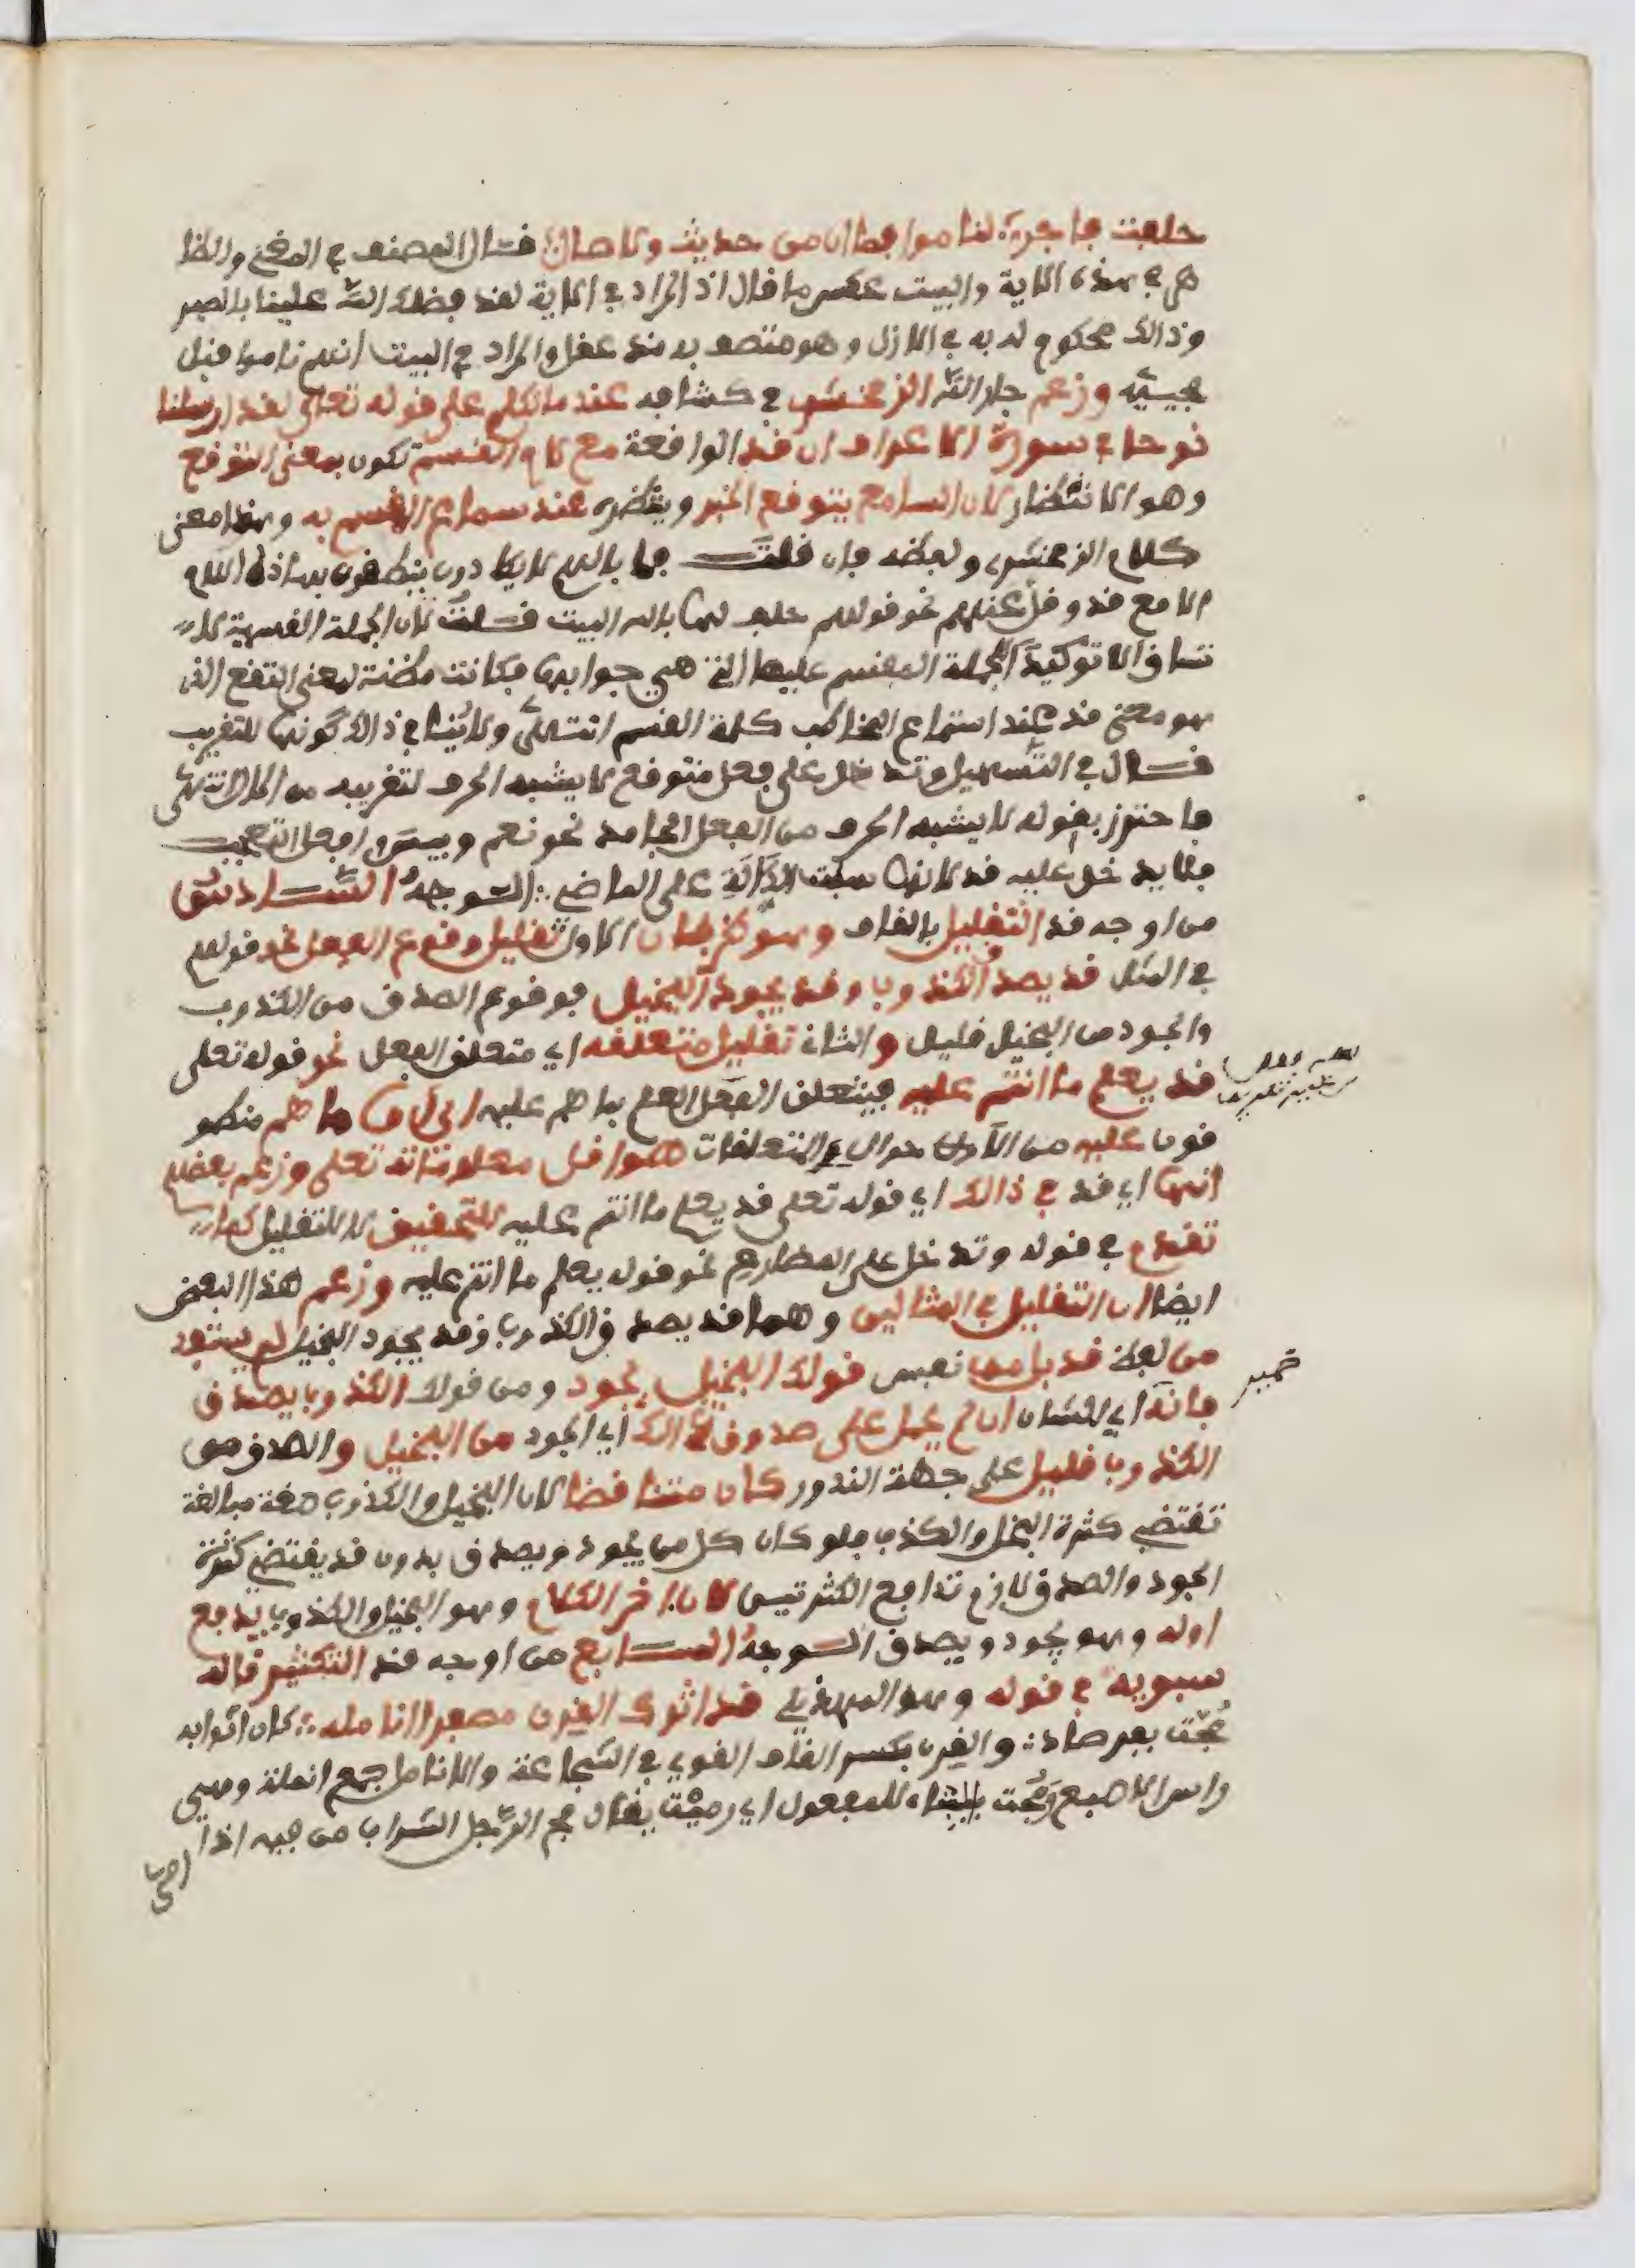 حلفت فاجر لناموا فما ان من حديث ولا صال قال المصنف في المغني والظا
هر في هذه الاية والبيت عكس ما قال اذ المراد في الاية لقد فضلك الله علينا بالصبر
وذالك محكوم له به في الازل وهو متصف به مند عقل والمراد في البيت انهم ناموا قبل
مجييه وزعم جار الله الزمخشري في كشافه عند ما تكلم على قوله تعلى لقد ارسلنا
نوحا في سورة الاعراف ان قد الواقعة مع لام القسم تكون بمعنى التوقع
وهو الانتظار لان السامع يتوقع الخبر وينتظره عند سماع القسم به وهذا معنى
كلام الزمخشري ولفظه فان قلت فما بالهم لا يكادون ينطقون بهاذه اللام
الا مع قد وقل عنهم نحو قولهم حلفت لها بالله البيت قلت لان الجملة القسمية لا
تساق الا توكيدا للجملة المقسم عليها التي هي جوابها فكانت مظنة لمعنى التوقع الذي
هو معنى قد عند استماع المخاطب كلمة القسم انتهى ولا ينافي ذالك كونها للتقريب
قال في التسهيل وتدخل على فعل متوقع لا يشبه الحرف لتقريبه من الحال انتهى
فاحترز بقوله لا يشبه الحرف من الفعل الجامد نحو نعم وبيس وافعل التعجب
فلا يدخل عليه قد لانها سلبت الدلالة على الماضي الوجه السادس
من اوجه قد التقليل بالقاف وهو ضربان الاول تقليل وقوع الفعل نحو قولهم
في المثل قد يصدق الكذوب وقد يجود البخيل فوقوع الصدق من الكذوب
والجود من البخيل قليل والثاني تقليل متعلقه اي متعلق الفعل نحو قوله تعلى
قد يعلم ما انتم عليه فيتعلق الفعل العلم بما هم عليه اي ان ما هم منطو
قون عليه من الاحوال والمتعلقات هو اقل معلوماته تعلى وزعم بعضهم
انها اي قد في ذالك اي قوله تعلى قد يعلم ما انتم عليه للتحقيق لا للتقليل كما
تقدم في قوله وتدخل على المضارع نحو قوله يعلم ما انتم عليه وزعم هذا البعض
ايضا ان التقليل في المثالين وهما قد يصدق الكذوب وقد يجود البخيل لم يستفد
من لفظ قد بل من نفس قولك البخيل يجود ومن قولك الكذوب يصدق
فانه اي الشان ان لم يحمل على صدور ذالك اي الجود من البخيل والصدق من
الكذوب قليل على جهة الندور كان متناقضا لان البخيل والكذوب صفة مبالغة
تقتضي كثرة البخل والكذب فلو كان كل من يجود ويصدق بدون قد يقتضي كثرة
الجود والصدق لازم تدافع الكثرتين لان اخر الكلام وهو البخيل والكذوب يدفع
اوله وهو يجود ويصدق الوجه السابع من اوجه قد التكثير قاله
سيبويه في قوله وهو الهذلي قد اترك القرن مصفرا انامله كان اثوابه
مجت بفرصاد والقرن بكسر القاف القوي في الشجاعة والانامل جمع انملة وهي
راس الاصبع ومجت بالبناء للمفعول اي رميت يقال مج الرجل الشراب من فيه اذا
ضمير